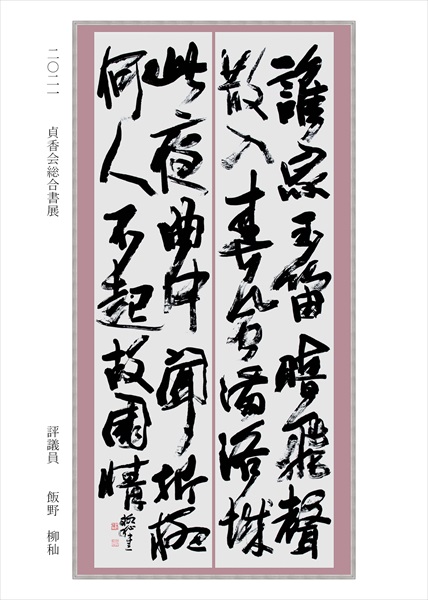 誰家玉笛暗飛聲
散入春風満洛城
此夜曲中聞折柳
何人不起故園情
二〇二一 貞香会総合書展
評議員 飯野 柳秈